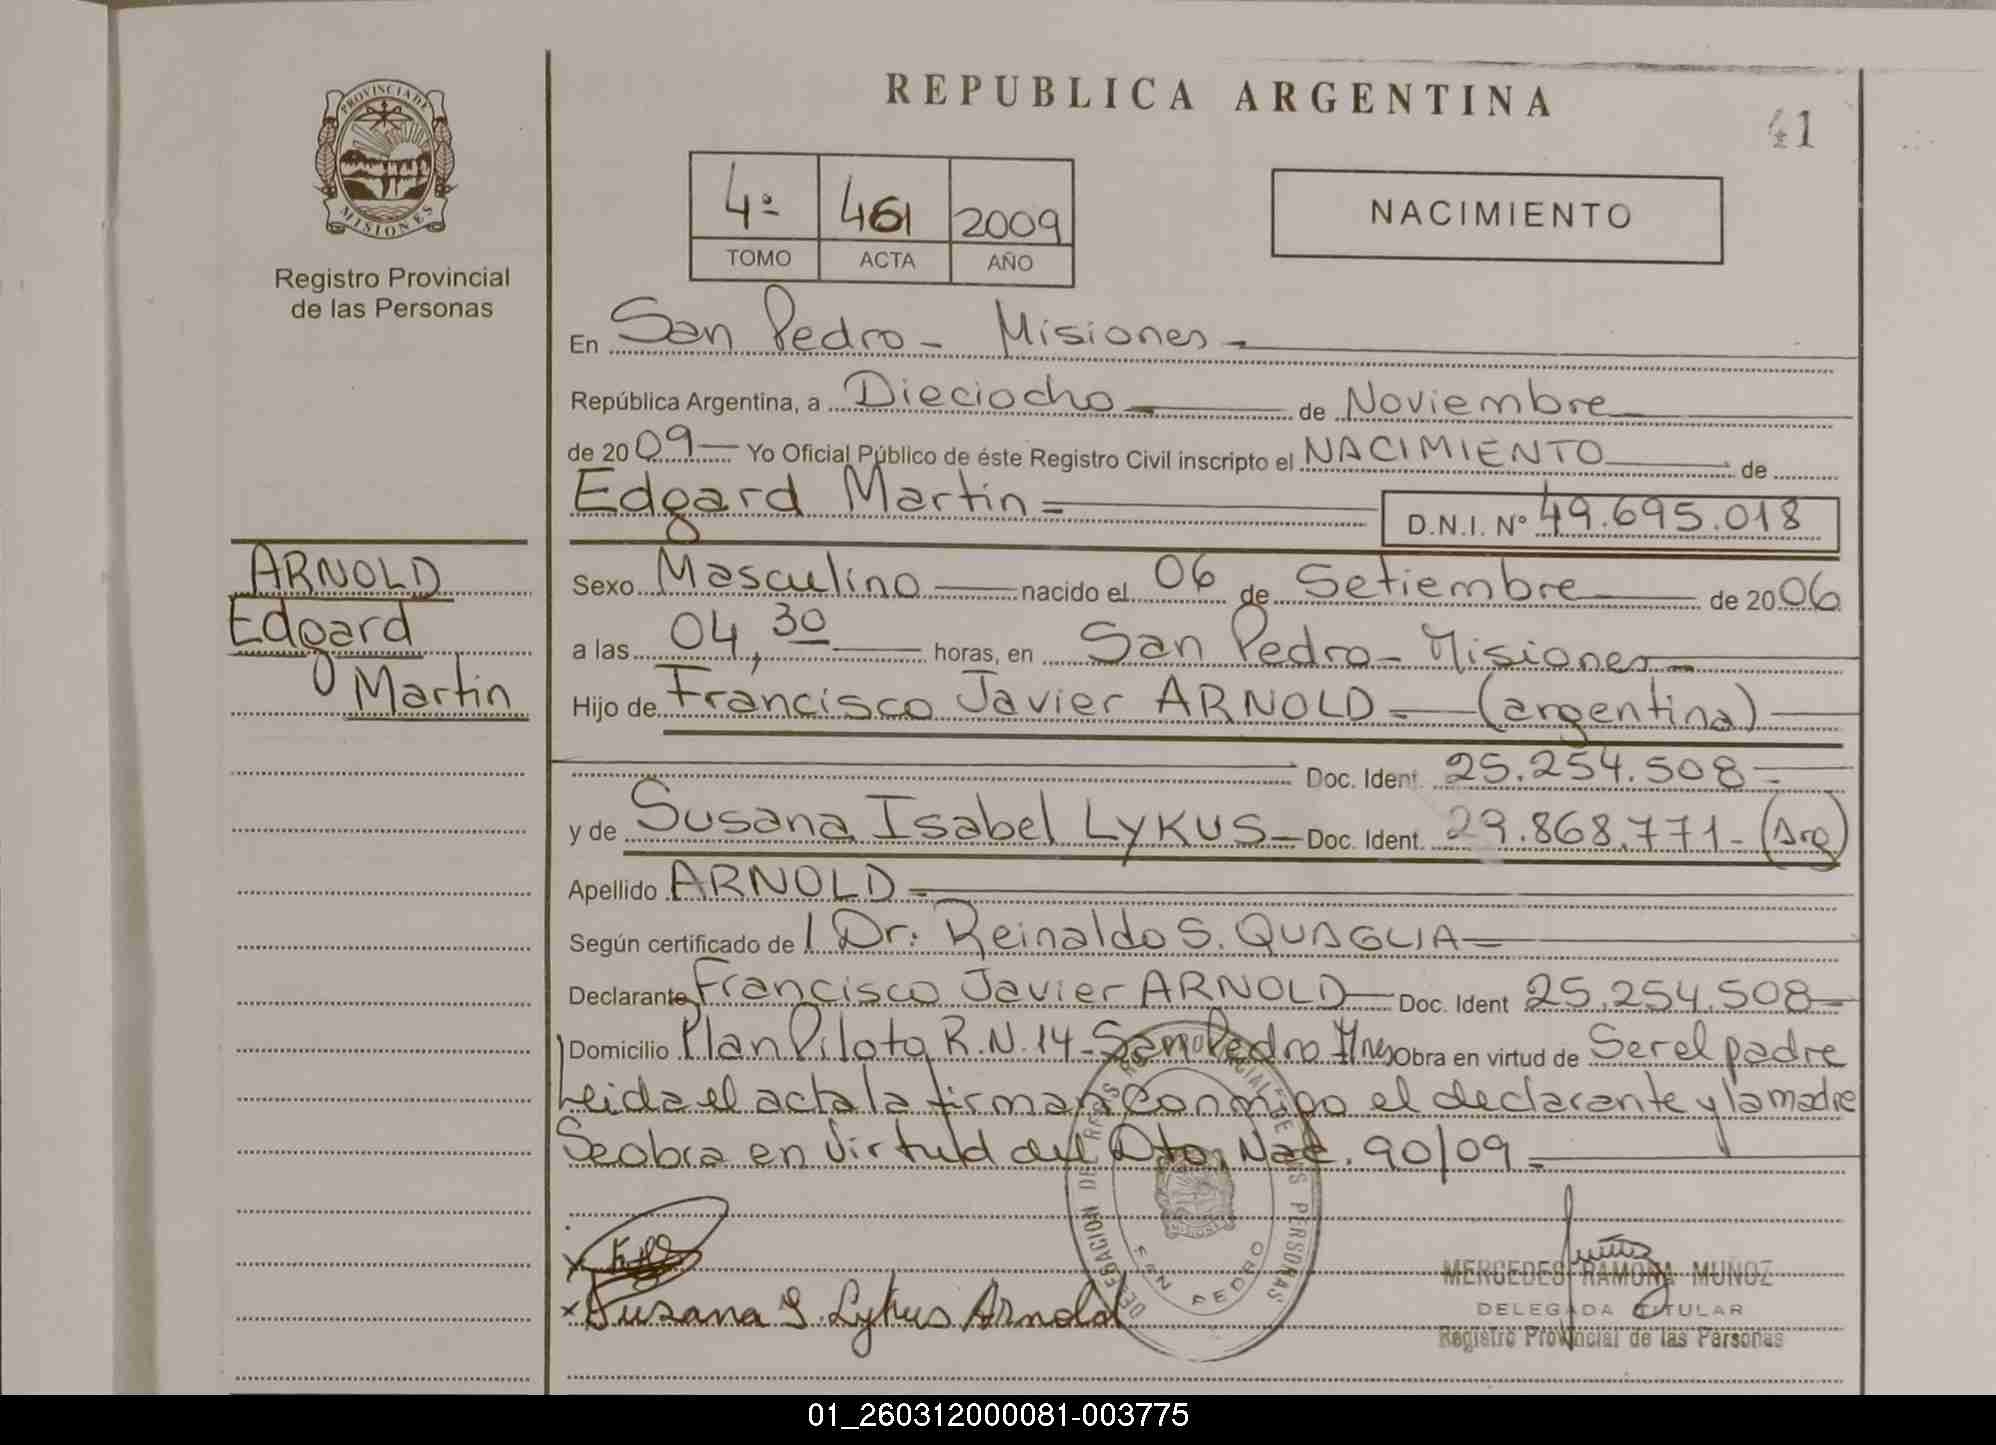 REPUBLICA ARGENTINA
41
PROVINCIA DE MISIONES
Registro Provincial
de las Personas
4º 461 2009
TOMO ACTA AÑO
NACIMIENTO
En San Pedro - Misiones
República Argentina, a Dieciocho de Noviembre
de 2009 Yo Oficial Público de éste Registro Civil inscripto el NACIMIENTO de
Edgard Martin D.N.I. Nº 49.695.018
ARNOLD
Edgard
Martin
Sexo Masculino nacido el 06 de Setiembre de 2006
a las 04,30 horas, en San Pedro - Misiones
Hijo de Francisco Javier ARNOLD (argentina)
Doc. Ident. 25.254.508
y de Susana Isabel LYKUS Doc. Ident. 29.868.771 - (Arg)
Apellido ARNOLD
Según certificado de Dr. Reinaldo S. QUAGLIA
Declarante Francisco Javier ARNOLD Doc. Ident 25.254.508
Domicilio Plan Piloto R.N. 14 - San Pedro Mnes Obra en virtud de Ser el padre
Leida el acta la firman conmigo el declarante y la madre
Se obra en virtud del Dto. Nac. 90/09
DELEGACION DEL REGISTRO PROVINCIAL DE LAS PERSONAS
SAN PEDRO
x
x Susana I. Lykus Arnold
MERCEDES RAMONA MUÑOZ
DELEGADA TITULAR
Registro Provincial de las Personas
01_260312000081-003775